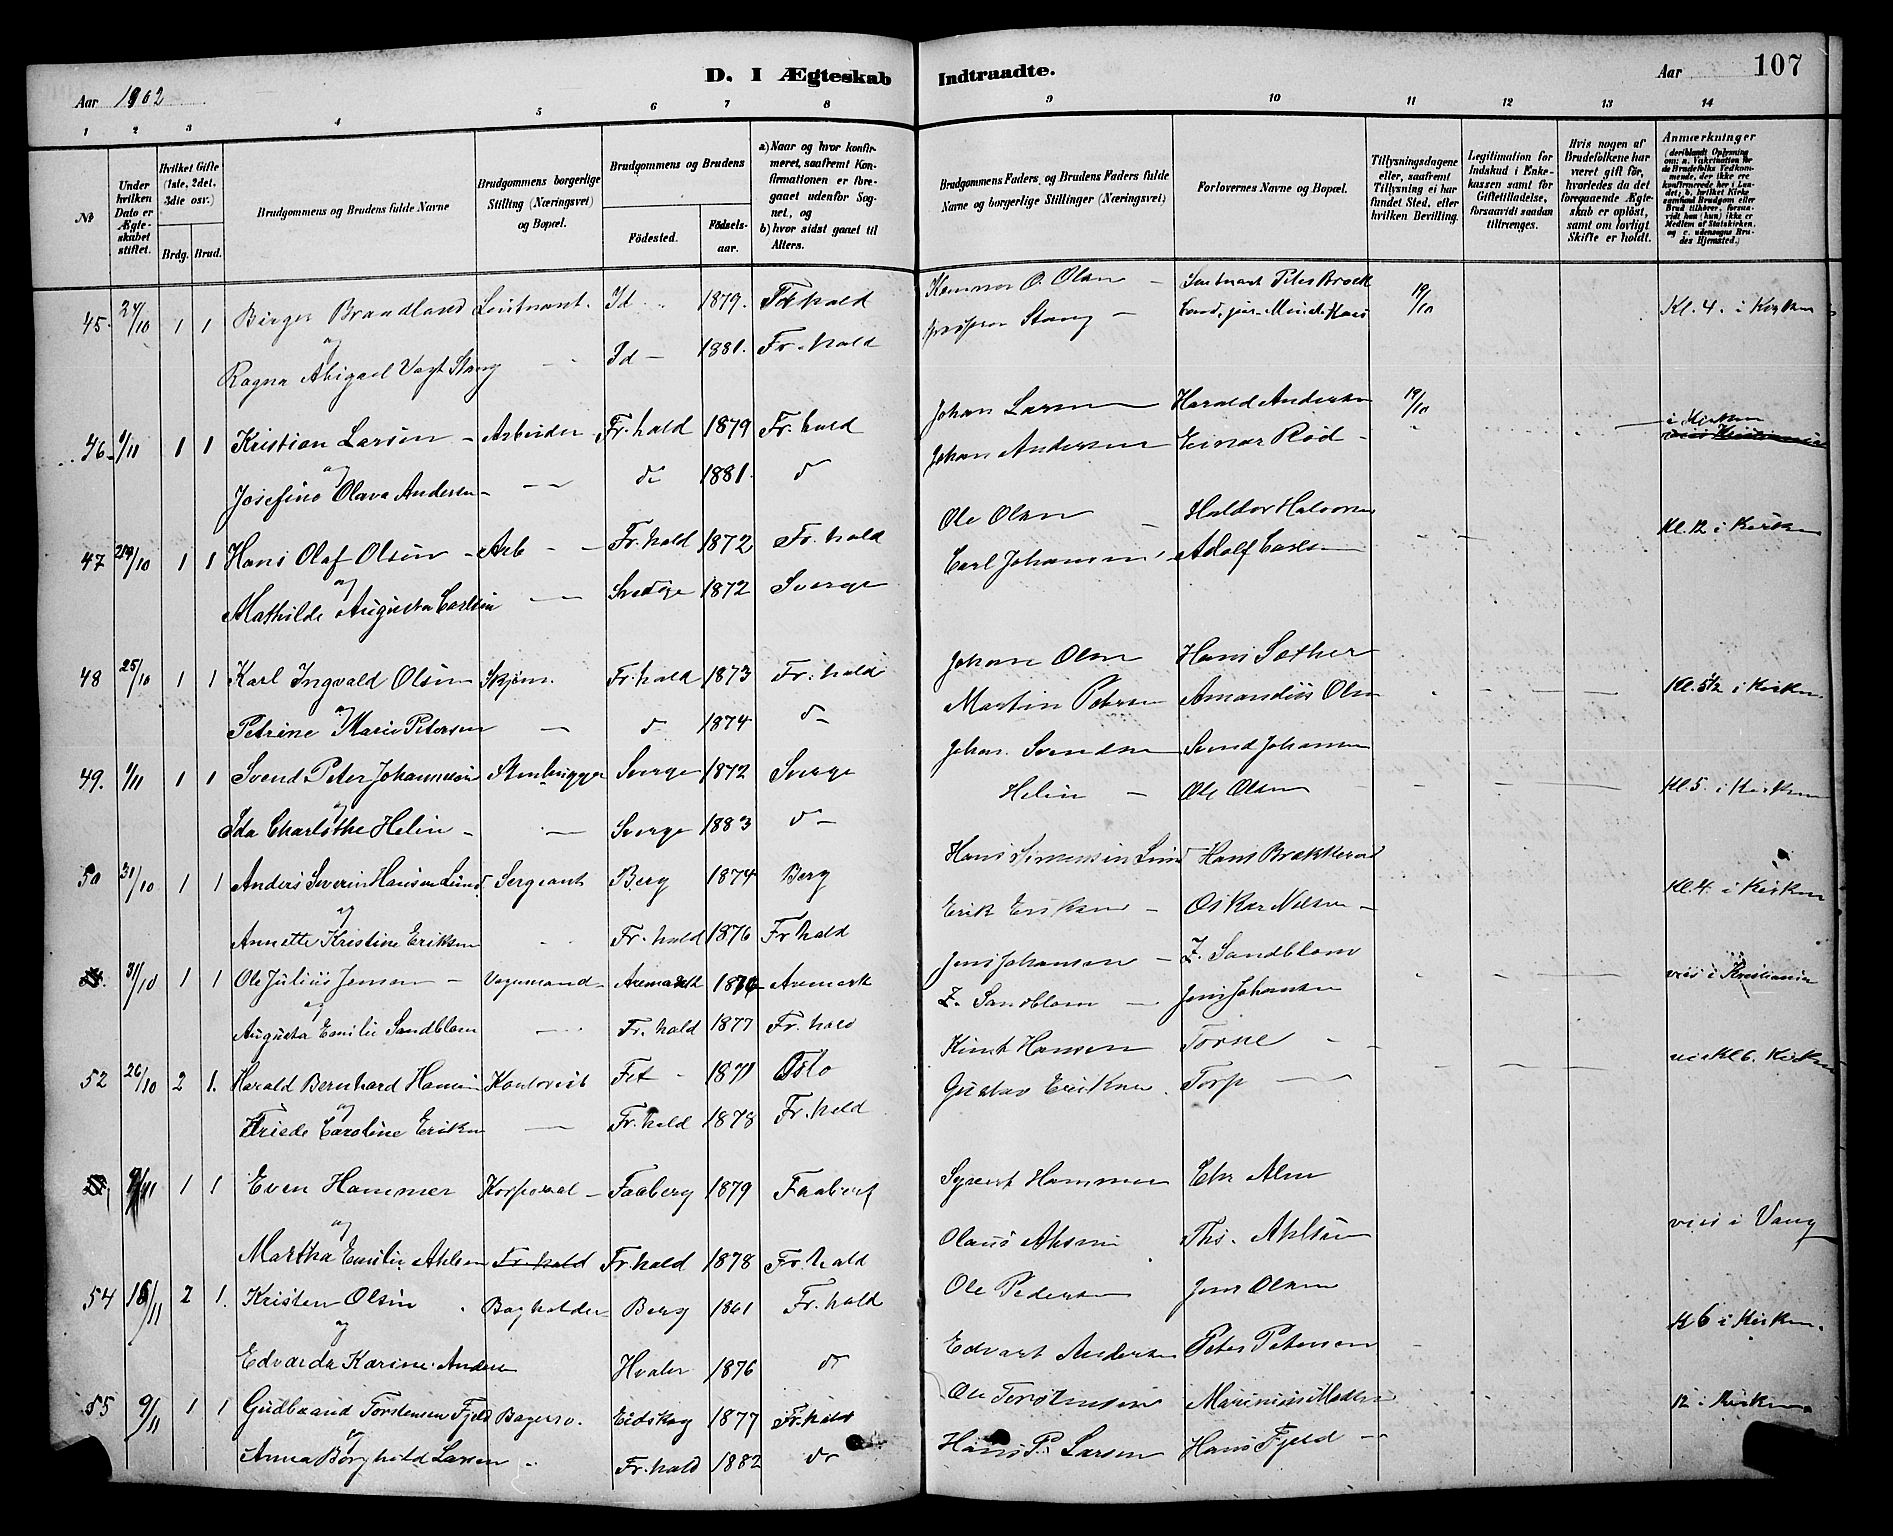 D. I Ægteskab Indtraadte.
Aar 1902
Aar 107
1 2 3 4 5 6 7 8 9 10 11 12 13 14
No
Under hvilken Dato er Ægteskabet stiftet.
Hvilket Gifte (1ste, 2det, 3die osv.)
Brdg. Brud.
Brudgommens og Brudens fulde Navne
Brudgommens borgerlige Stilling (Næringsvei) og Bopæl.
Brudgommens og Brudens
Fødested.
Fødselsaar.
a) Naar og hvor konfirmeret, saafremt Konfirmationen er foregaaet udenfor Sognet, og
b) hvor sidst gaaet til Alters.
Brudgommens Faders og Brudens Faders fulde Navne og borgerlige Stillinger (Næringsvei)
Forlovernes Navne og Bopæl.
Tillysningsdagene eller, saafremt Tillysning ei har fundet Sted, efter hvilken Bevilling.
Legitimation for Indskud i Enkekassen samt for Giftetilladelse, forsaavidt saadan tiltrænges.
Hvis nogen af Brudefolkene har været gift før, hvorledes da det foregaaende Ægteskab er opløst, samt om lovligt Skifte er holdt.
Anmærkninger
45. 24/10 1 1 Birger Brandland Leutnant. Id 1879. Fr.hald O. Olsen 19/10 Kl. 4. i Kirken
og
Ragna Abigael Vogt Stang Id 1881. Fr.hald Stang
46. 1/11 1 1 Kristian Larsen Arbeider Fr.hald 1879 Fr.hald Johan Larsen Harald Andersen 19/10 i Kirken
og
Josefine Olava Andersen do 1881. do Johan Andersen Einar Rød
47 1 1 Hans Olaf Olsen Arb Fr.hald 1872 Fr.hald Ole Olsen Haldor Halvorsen Kl. 12 i Kirken
og
Mathilde Augusta Carlsen Sverige 1872 Sverge Carl Johansen Adolf Carlsen
48 25/10 1 1 Karl Ingvald Olsen Skjøm. Fr.hald 1873 Fr.hald Johan Olsen Hans Sæther Kl. 5 1/2 i Kirken
og
Petrine Marie Petersen do 1874 do Martin Petersen Amandus Olsen
49. 1/11 1 1 Svend Peter Johannesen Stenhugger Sverge 1872 Sverge Johan Svendsen Svend Johansen Kl. 5. i Kirken
og
Ida Charlothe Helin Sverge 1883 do Helin Ole Olsen
50 31/10 1 1 Anders Severin Hansen Lund Sergeant Berg 1874 Berg Hans Simensen Lund Hans Brækkerød Kl. 4. i Kirken
og
Annette Kristine Eriksen Fr.hald 1876 Fr.hald Erik Eriksen Oskar Nilsen
31/10 1 1 Ole Julius Jensen Vognmand Aremark Aremark Jens Johansen Z. Sandblom vies i Kristiania
og
Augusta Emilie Sandblom Fr.hald 1877 Fr.hald Z. Sandblom Jens Johansen
52 26/10 2 1. Harald Bernhard Hansen Kontorist Fet 1871 Oslo Knut Hansen Torne Kl. 6. Kirken
og
Frida Caroline Eriksen Fr.hald 1878 Fr.hald Gustav Eriksen Torp
1 1 Even Hammer Korporal Faaberg 1879 Faaberg Syvert Hammer Chr Alm vies i Vang
og
Martha Emilie Ahlsen Fr.hald Fr.hald 1878 Fr.hald Olaus Ahlsen Ths. Ahlsen
54 2 1. Kristen Olsen Bogholder Berg 1861 Fr.hald Ole Pedersen Jens Olsen Kl 6 i Kirken.
og
Edvarda Karine Andersen Hvaler 1876 do Edvart Andersen Peter Petersen
55 9/11 1 1 Gudbrand Torstensen Fjeld Bagersv. Eidskog 1877 Fr.hald Ole Torstensen 12 i Kirken
og
Anna Borghild Larsen Fr.hald 1882 do Hans P. Larsen Hans Fjeld